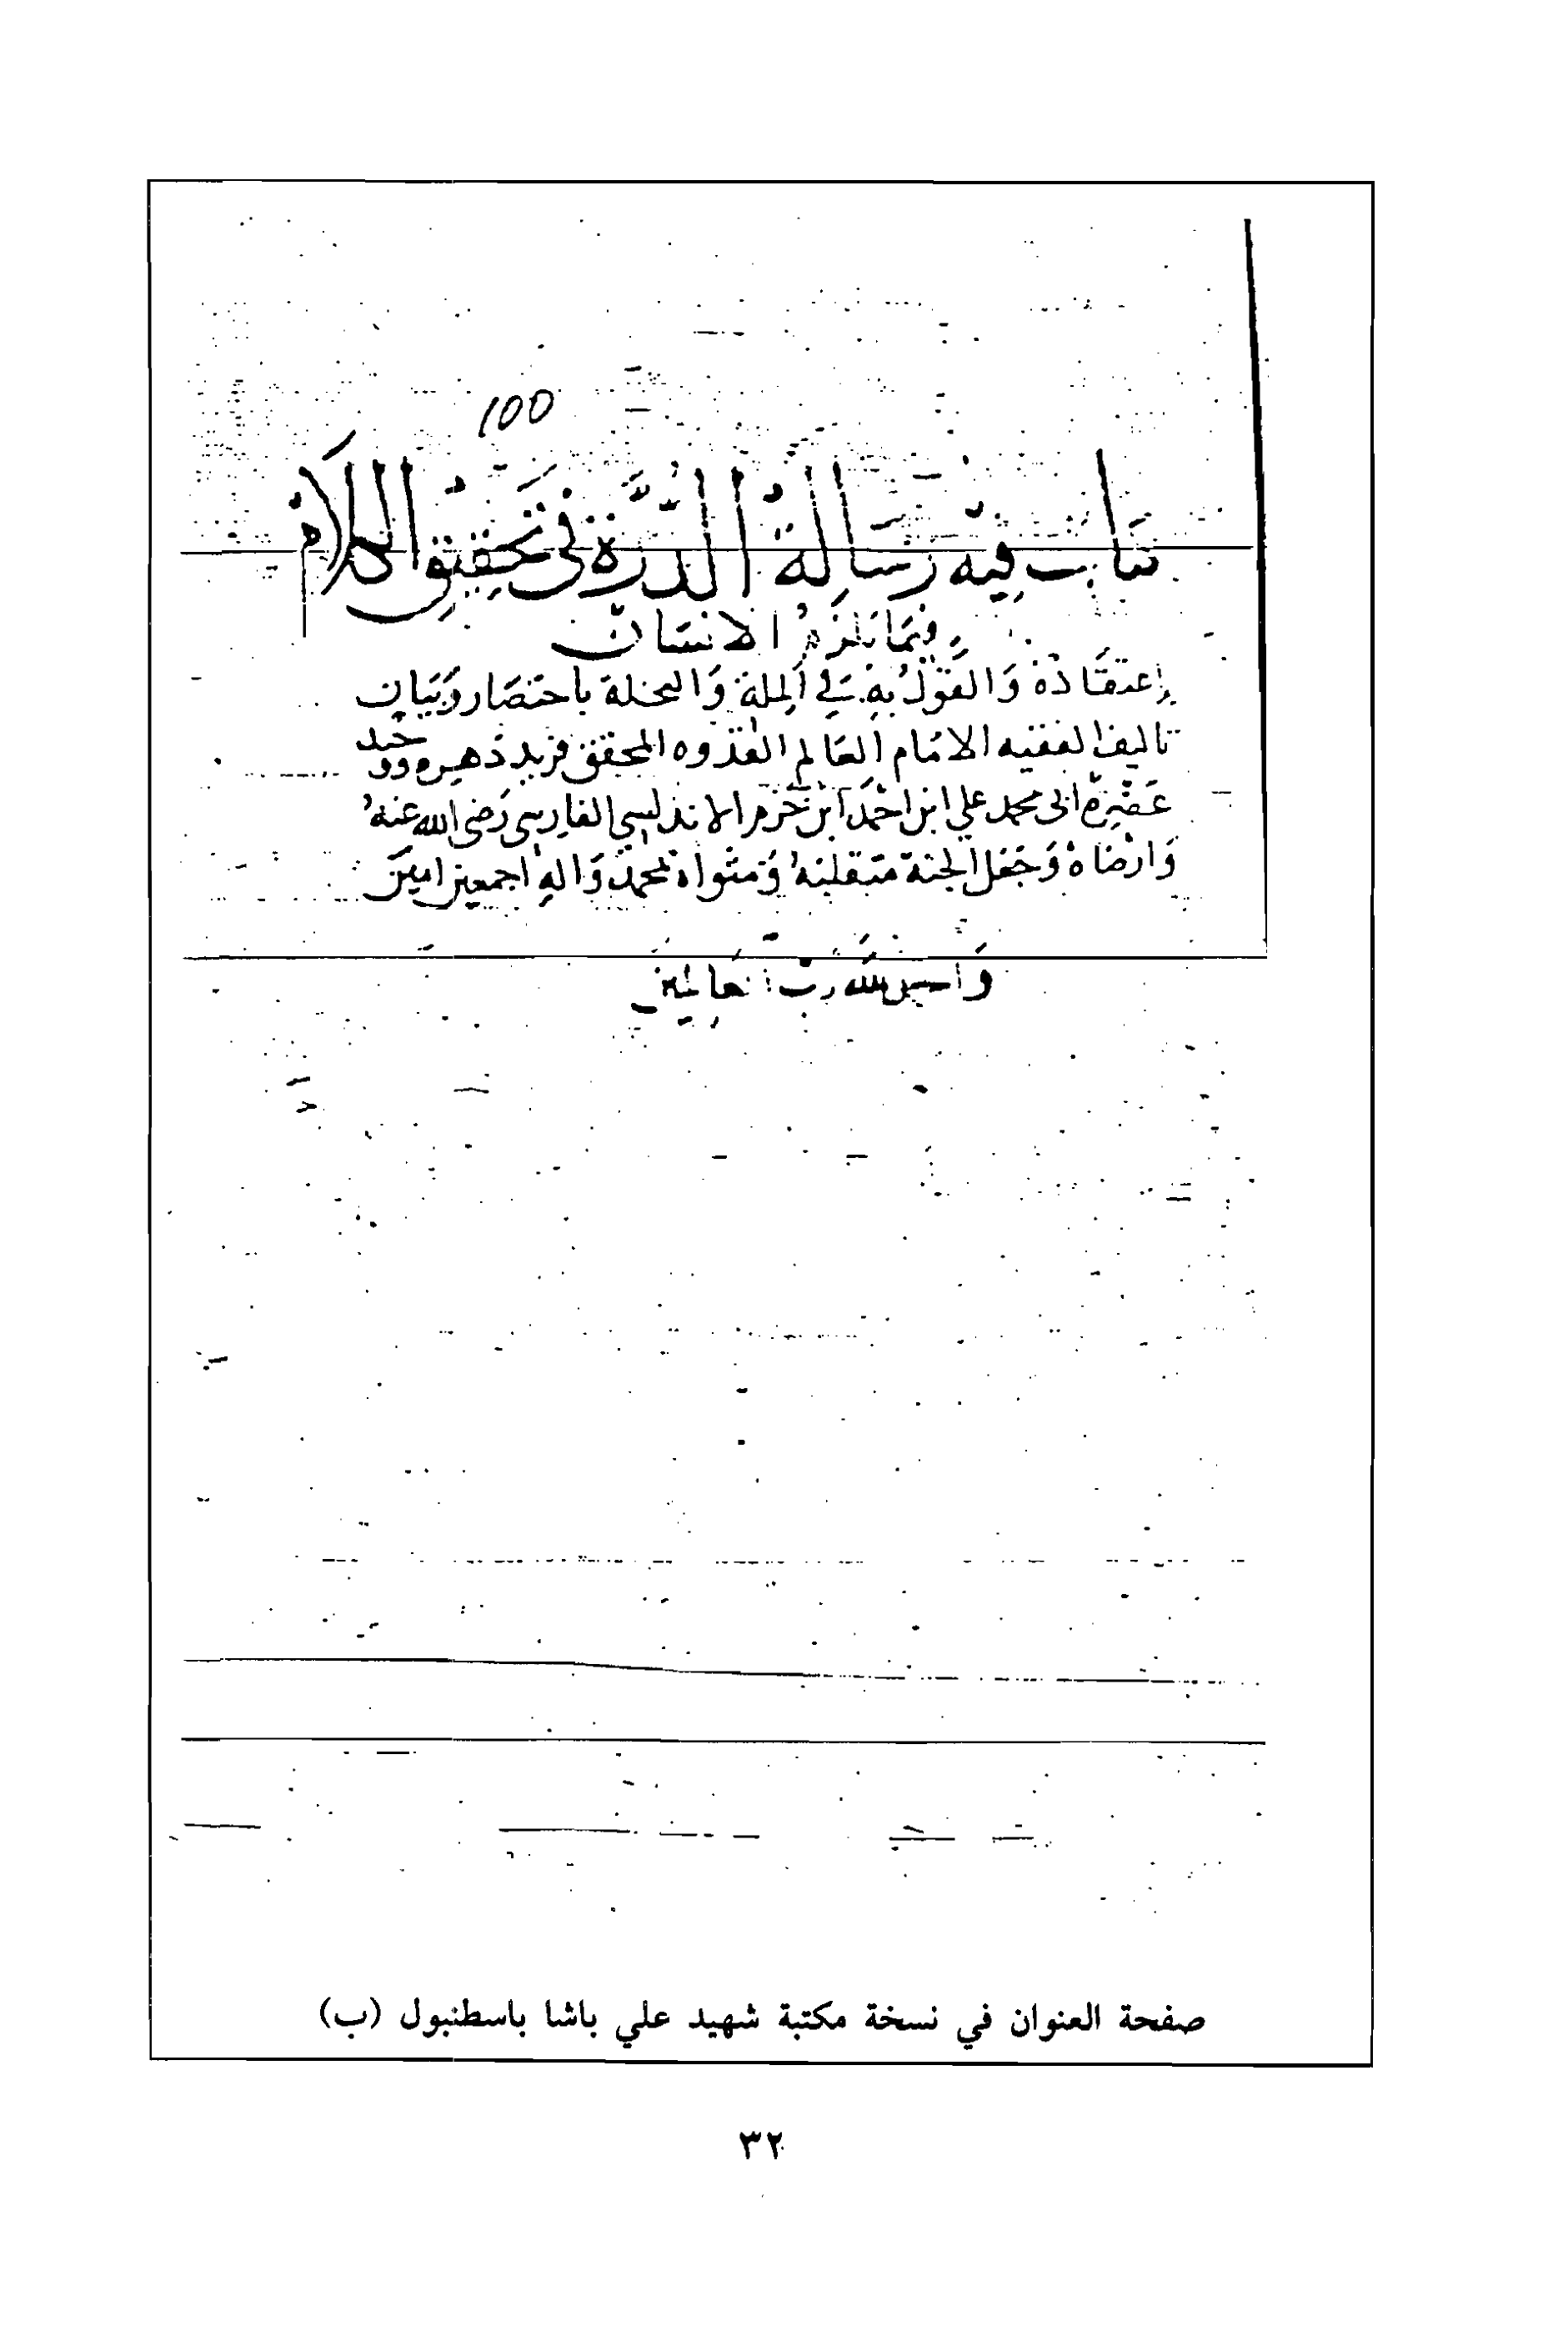 100
كتاب فيه رسالة الدرة في تحقيق الكلام
فيما يلزم الانسان
إعتقاده والقول به في الملة والنحلة باختصار وبيان
تاليف الفقيه الامام العالم القدوه المحقق فريد دهره ووحيد
عصره ابى محمد علي ابن احمد ابن حزم الاندلسي الفارسي رضى الله عنه
وارضاه وجعل الجنة متقلبه ومثواه بمحمد واله اجمعين امين
والحمد لله رب العالمين
صفحة العنوان في نسخة مكتبة شهيد علي باشا باسطنبول (ب)
٣٢